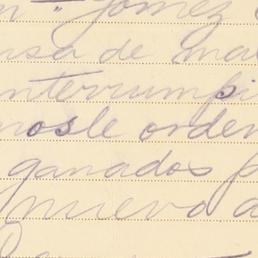 " Gomez
nsa de ma
nterrumpi
nosle orden
ganados p
nuevo a